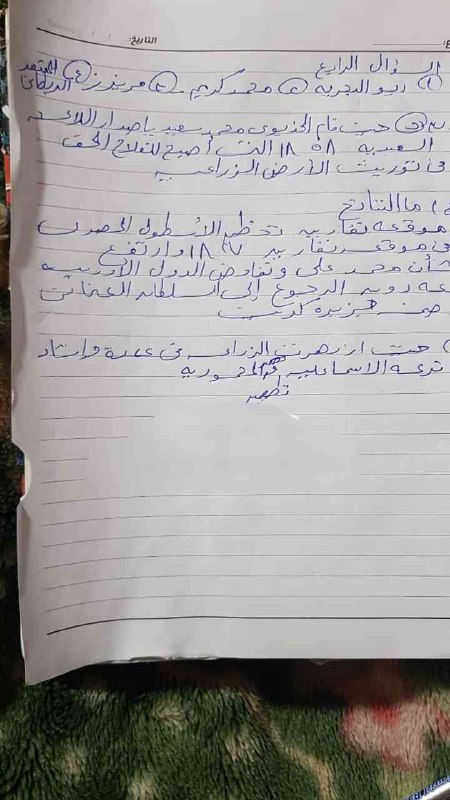 التاريخ:
السؤال الرابع
١) ديو البحرية ٢) محمد كريم ـ ٣) مريندرز ٤) المعتمد البريطاني
حيث قام الخديوى محمد سعيد باصدار اللائحه
السعديه ١٨٥٨ التى أصبح للفلاح الحق
فى توريث الأرض الزراعيه
ما النتائج
موقعه نفارين تحطيم الأسطول المصرى
فى موقعه نفارين ١٨٢٧ وارتفع
شأن محمد على وتفاوض الدول الأوربيه
معه دون الرجوع إلى السلطان العثمانى
ضم جزيرة كريت
حيث ازدهرت الزراعه فى عهدة وانشاد
ترعه الاسماعيليه
تطهير